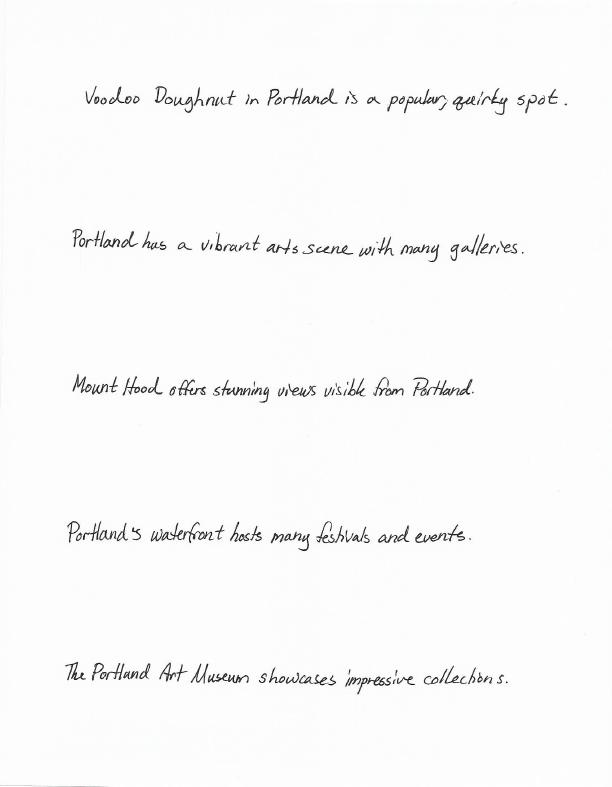 Voodoo Doughnut in Portland is a popular, quirky spot.
Portland has a vibrant arts scene with many galleries.
Mount Hood offers stunning views visible from Portland.
Portland's waterfront hosts many festivals and events.
The Portland Art Museum showcases impressive collections.